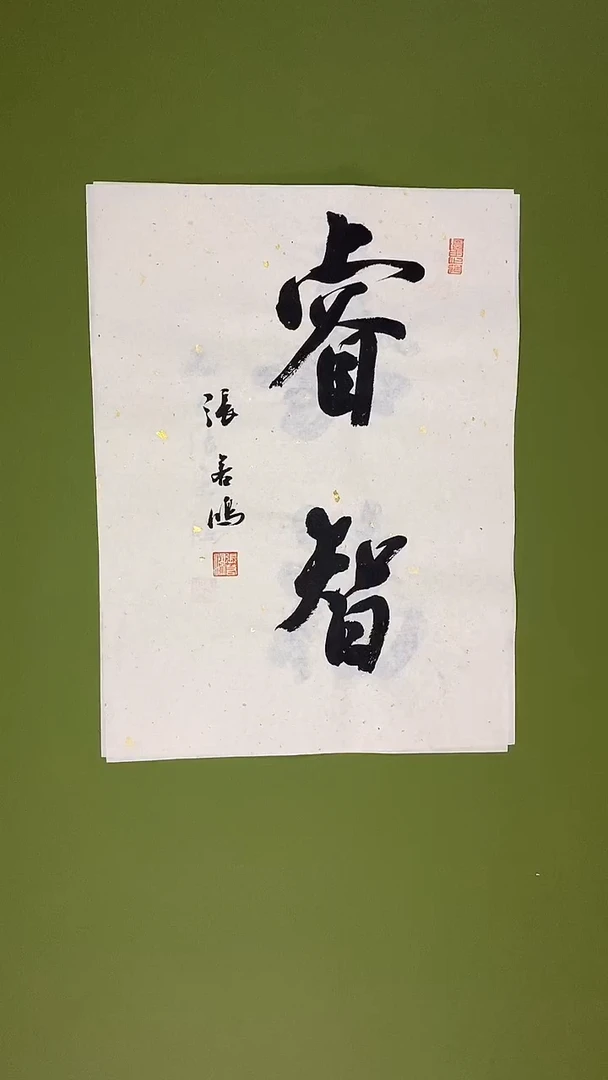 睿智
張若鴻